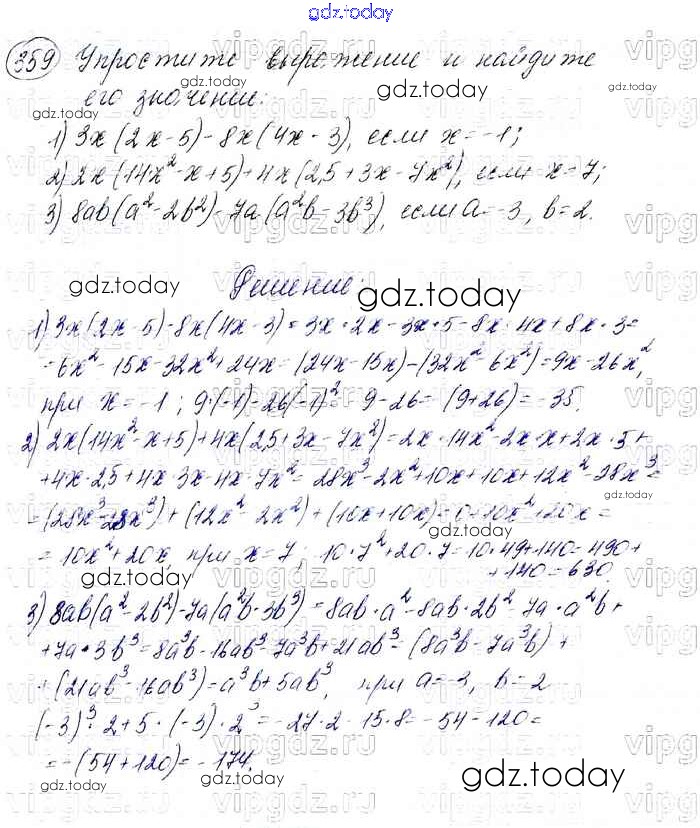 gdz.today
359 Упростите выражение и найдите
его значение:
1) 3x(2x-5)-8x(4x-3), если x=-1;
2) 2x(14x²-x+5)+4x(2,5+3x-7x²), если x=7;
3) 8ab(a²-2b²)-7a(a²b-3b³), если a=-3, b=2.
Решение:
1) 3x(2x-5)-8x(4x-3)=3x·2x-3x·5-8x·4x+8x·3=
=6x²-15x-32x²+24x=(24x-15x)-(32x²-6x²)=9x-26x²,
при x=-1; 9·(-1)-26(-1)²=-9-26=-(9+26)=-35.
2) 2x(14x²-x+5)+4x(2,5+3x-7x²)=2x·14x²-2x·x+2x·5+
+4x·2,5+4x·3x-4x·7x²=28x³-2x²+10x+10x+12x²-28x³=
=(28x³-28x³)+(12x²-2x²)+(10x+10x)=0+10x²+20x=
=10x²+20x, при x=7; 10·7²+20·7=10·49+140=490+
+140=630.
3) 8ab(a²-2b²)-7a(a²b-3b³)=8ab·a²-8ab·2b²-7a·a²b+
+7a·3b³=8a³b-16ab³-7a³b+21ab³=(8a³b-7a³b)+
+(21ab³-16ab³)=a³b+5ab³, при a=-3, b=2
(-3)³·2+5·(-3)·2³=-27·2-15·8=-54-120=
=-(54+120)=-174.
gdz.today